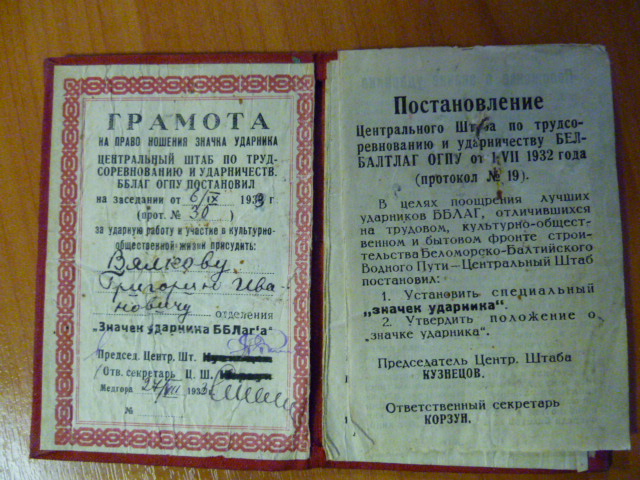 ГРАМОТА
НА ПРАВО НОШЕНИЯ ЗНАЧКА УДАРНИКА
ЦЕНТРАЛЬНЫЙ ШТАБ ПО ТРУД-
СОРЕВНОВАНИЮ И УДАРНИЧЕСТВ.
ББЛАГ ОГПУ ПОСТАНОВИЛ
на заседании от 6/IX 1933 г
(прот. № 30)
за ударную работу и участие в культурно-
общественной жизни присудить:
Вялкову
Григорию Ива
новичу
отделения
"Значек ударника ББЛаг'а"
Председ. Центр. Шт.
Отв. секретарь Ц. Ш.
Медгора 193
№
Постановление
Центрального Штаба по трудсо-
ревнованию и ударничеству БЕЛ-
БАЛТЛАГ ОГПУ от 1/VII 1932 года
(протокол № 19).
В целях поощрения лучших
ударников ББЛАГ, отличившихся
на трудовом, культурно-общест-
венном и бытовом фронте строи-
тельства Беломорско-Балтийского
Водного Пути—Центральный Штаб
постановил:
1. Установить специальный
„значек ударника".
2. Утвердить положение о
„значке ударника".
Председатель Центр. Штаба
КУЗНЕЦОВ.
Ответственный секретарь
КОРЗУН.